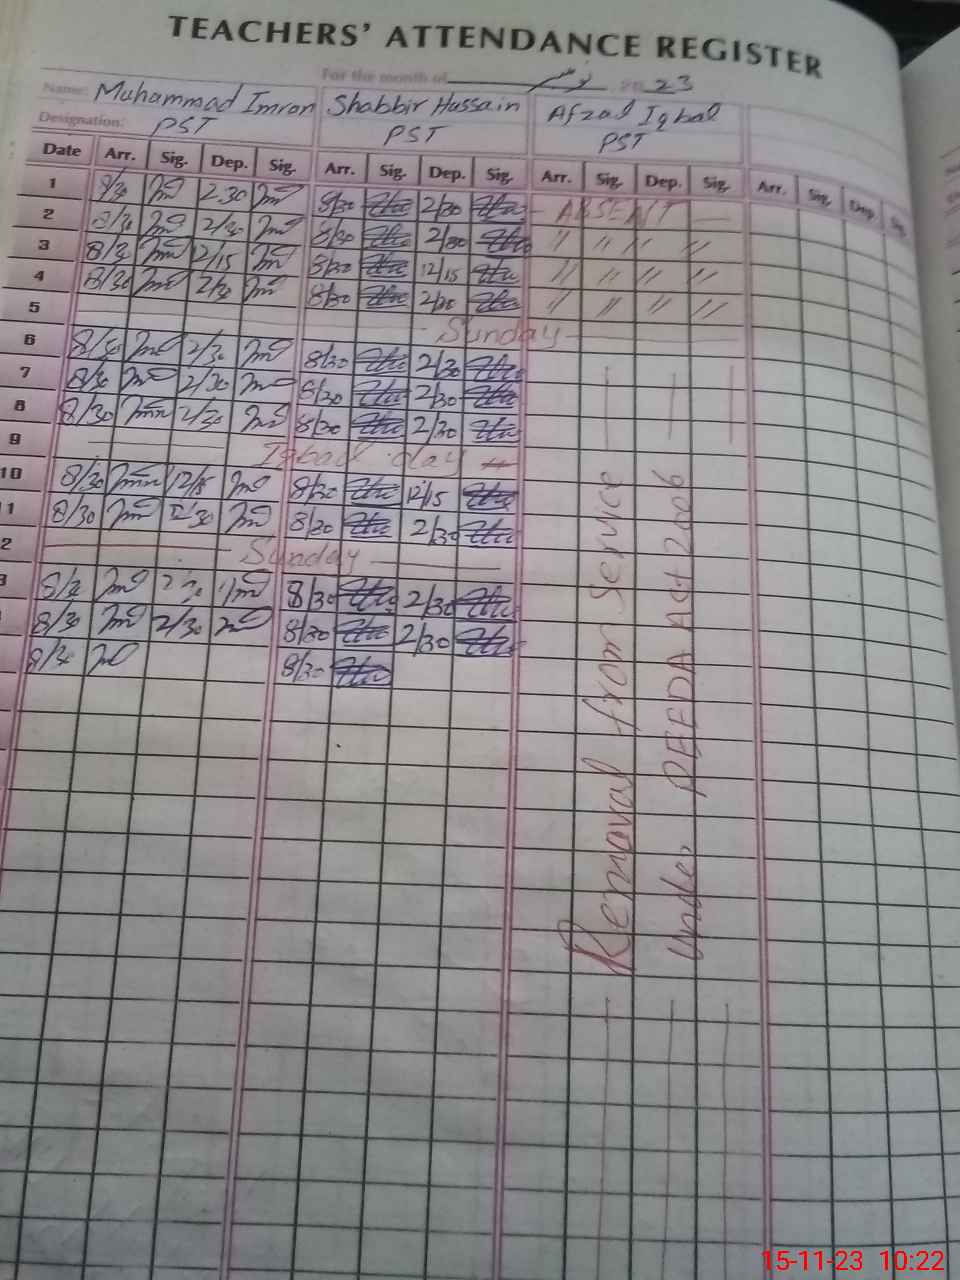 TEACHERS' ATTENDANCE REGISTER
For the month of نومبر 23
Name: Muhammad Imran Shabbir Hussain Afzal Iqbal
Designation: PST PST PST
Date Arr. Sig. Dep. Sig. Arr. Sig. Dep. Sig. Arr. Sig. Dep. Sig. Arr. Sig. Dep. Sig.
1 8/30 2.30 8/30 2/30 ABSENT
2 8/30 2/30 8/30 2/30 " " " "
3 8/30 12/15 8/30 12/15 " " " "
4 8/30 2/30 8/30 2/30 " " " "
5 Sunday
6 8/30 2/30 8/30 2/30
7 8/30 2/30 8/30 2/30
8 8/30 2/30 8/30 2/30
9 Iqbal day
10 8/30 12/15 8/30 12/15
1 8/30 2/30 8/30 2/30
2 Sunday
3 8/30 2/30 8/30 2/30
8/30 2/30 8/30 2/30
8/30 8/30
Removal from Service
Under PEEDA Act 2006
15-11-23 10:22